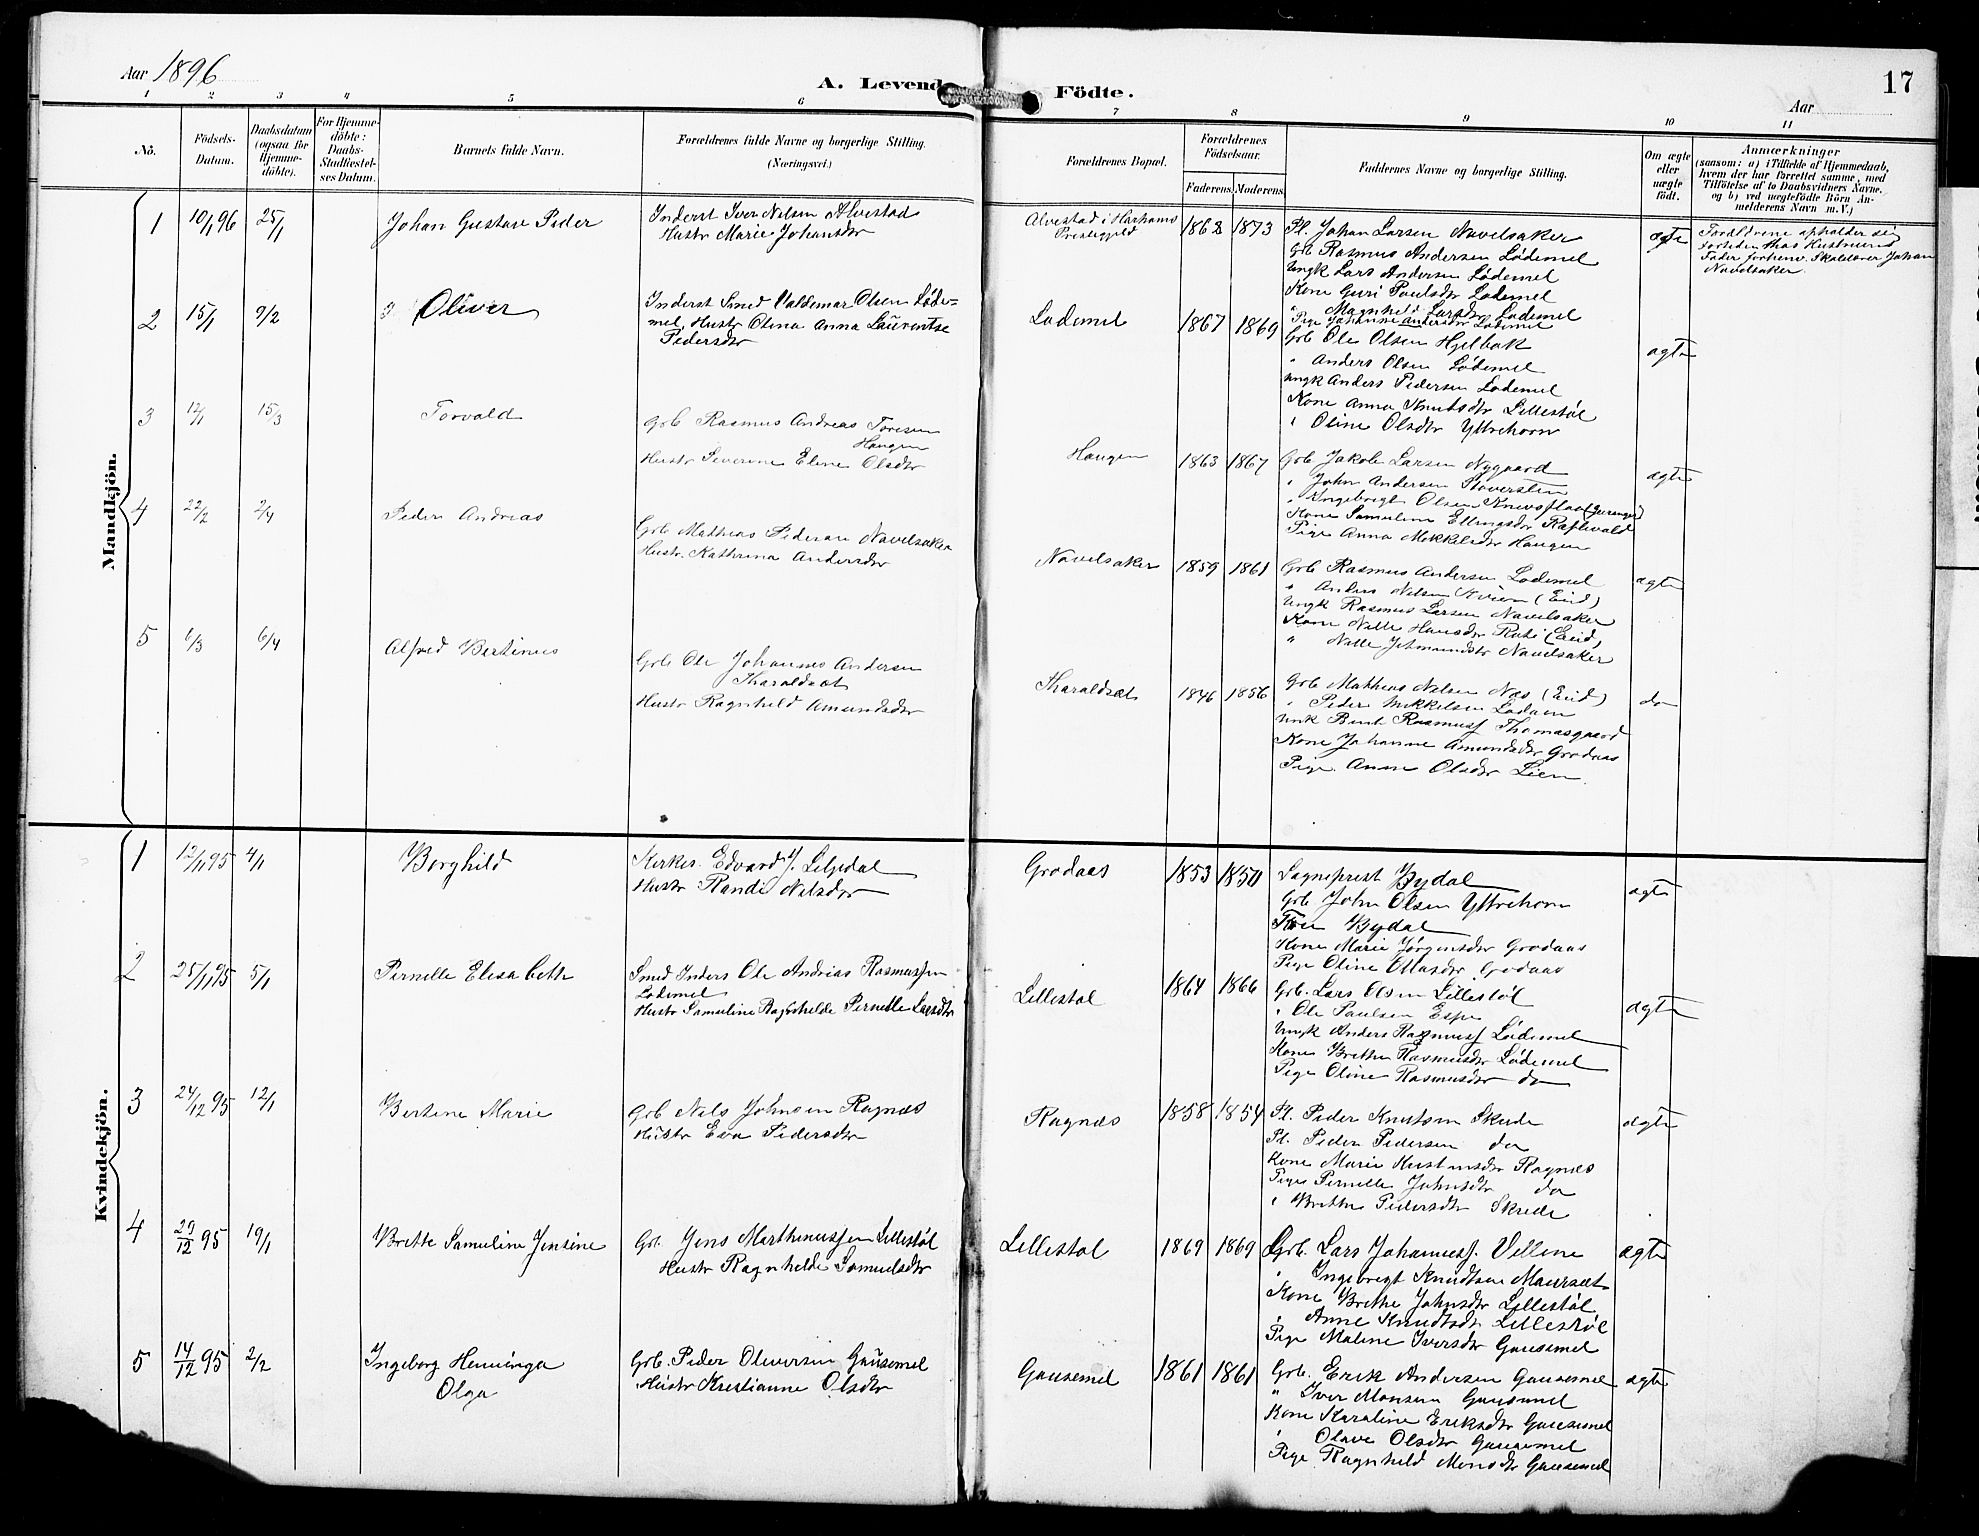 Aar 1896
A. Levende
Födte.
17
Aar
1 2 3 4 5 6 7 8 9 10 11
No.
Födsels-
Datum.
Daabsdatum
(ogsaa for
Hjemme-
döbte).
For Hjemme-
döbte:
Daabs-
Stadfæstel-
ses Datum.
Barnets fulde Navn.
Forældrenes fulde Navne og borgerlige Stilling.
(Næringsvei.)
Forældrenes Bopæl.
Forældrenes
Födselsaar.
Faderens. Moderens.
Faddernes Navne og borgerlige Stilling.
Om ægte
eller
uægte
födt.
Anmærkninger
(saasom: a) i Tilfælde af Hjemmedaab,
hvem der har forrettet samme, med
Tilföielse af to Daabsvidners Navne,
og b) ved uægtefödte Börn An-
melderens Navn m. V.)
Mandkjön.
1 10/1 96 25/1 Johan Gustav Peder
Inderst Iver Nilsen Alvestad
Hustr Marie Johansdtr
Alvestad i Harhams
Prestegjeld
1862 1873
Pl. Johan Larsen Navelsaker
Grb Rasmus Andersen Lødemel
Ungk Lars Andersen Lødemel
Kone Guri Paulsdtr Lødemel
" Magnhild Larsdtr Lødemel
Pige Johanne Andersdtr Lødemel
ægte
Forældrene opholder sig
fortiden hos Hustruens
Fader forhenv. Skolelærer Johan
Navelsaker.
2 15/1 9/2 Oliver
Inderst Smed Valdemar Olsen Løde-
mel, Hustr Olina Anna Laurentse
Pedersdtr
Lødemel
1867 1869
Grb Ole Olsen Hjelbak
" Anders Olsen Lødemel
Ungk Anders Pedersen Lødemel
Kone Anna Knutsdtr Lillestøl
" Oline Olsdtr Yttrehorn
ægte
3 12/1 15/3 Torvald
Grb Rasmus Andreas Toresen
Haugen
Hustr Severine Eline Olsdtr
Haugen
1863 1867
Grb Jakob Larsen Nygaard
" John Andersen Stoversten
" Ingebrigt Olsen Knivsflaa (Geiranger)
Kone Samuline Ellingsdtr Raftevold
Pige Anna Mikkelsdtr Haugen
ægte
4 22/2 2/4 Peder Andreas
Grb Mathias Pedersen Navelsaker
Hustr. Kathrina Andersdtr
Navelsaker
1859 1861
Grb Rasmus Andersen Lødemel
" Anders Nilsen Kvien (Eid)
Ungk Rasmus Larsen Navelsaker
Kone Nille Hansdtr Roti (Eid)
" Nille Jetmundsdtr Navelsaker
ægte
5 6/3 6/4 Alfred Bertinus
Grb Ole Johannes Andersen
Tharaldsæt
Hustr Ragnhild Amundsdtr
Tharaldsæt
1846 1856
Grb Mathias Nilsen Næs (Eid)
" Peder Mikkelsen Lødøen
Ungk Bent Rasmuss Thomasgaard
Kone Johanne Amundsdtr Grodaas
Pige. Anne Olsdtr Lien
do
Kvindekjön.
1 12/11 95 4/1 Borghild
Kirkes. Edvard J. Liljedal
Hustr Randi Nilsdtr
Grodaas
1853 1850
Sogneprest Bydal
Grb. John Olsen Yttrehorn
Frue Bydal
Kone Marie Jørgensdtr Grodaas
Pige Oline Eliasdtr Grodaas
ægte
2 25/11 95 5/1 Pernille Elisabeth
Smed Inders Ole Andrias Rasmussen
Lødemel
Hustr Samuline Ragnhilde Pernille Larsdtr
Lillestøl
1864 1866
Grb. Lars Olsen Lillestøl
" Ole Paulsen Espe
Ungk Anders Rasmuss Lødemel
Kone Brithe Rasmusdtr Lødemel
Pige Oline Rasmusdtr do
ægte
3 24/12 95 12/1 Bertine Marie
Grb Nils Johnsen Ragnæs
Hustr Eva Pedersdtr
Ragnæs
1858 1854
Pl. Peder Knutsen Skrede
Pl. Peder Pedersen do
Kone Marie Kristensdtr Ragnæs
Pige Pernille Johnsdtr do
" Brithe Pedersdtr Skrede
ægte
4 29/12 95 19/1 Britte Samuline Jensine
Grb. Jens Marthinussen Lillestøl
Hustr Ragnhilde Samuelsdtr
Lillestøl
1869 1869
Grb. Lars Johanness. Vellene
" Ingebrigt Knudtsen Maursæt
Kone Brithe Johnsdtr Lillestøl
" Anne Knudtsdtr Lillestøl
Pige Maline Iversdtr Gausemel
ægte
5 14/12 95 2/2 Ingeborg Henninga
Olga
Grb. Peder Oliversen Gausemel
Hustr Kristianne Olsdtr
Gausemel
1861 1861
Grb. Erik Andersen Gausemel
" Iver Monsen Gausemel
Kone Karoline Eriksdtr Gausemel
" Olave Olsdtr Gausemel
Pige Ragnhild Monsdtr Gausemel
ægte